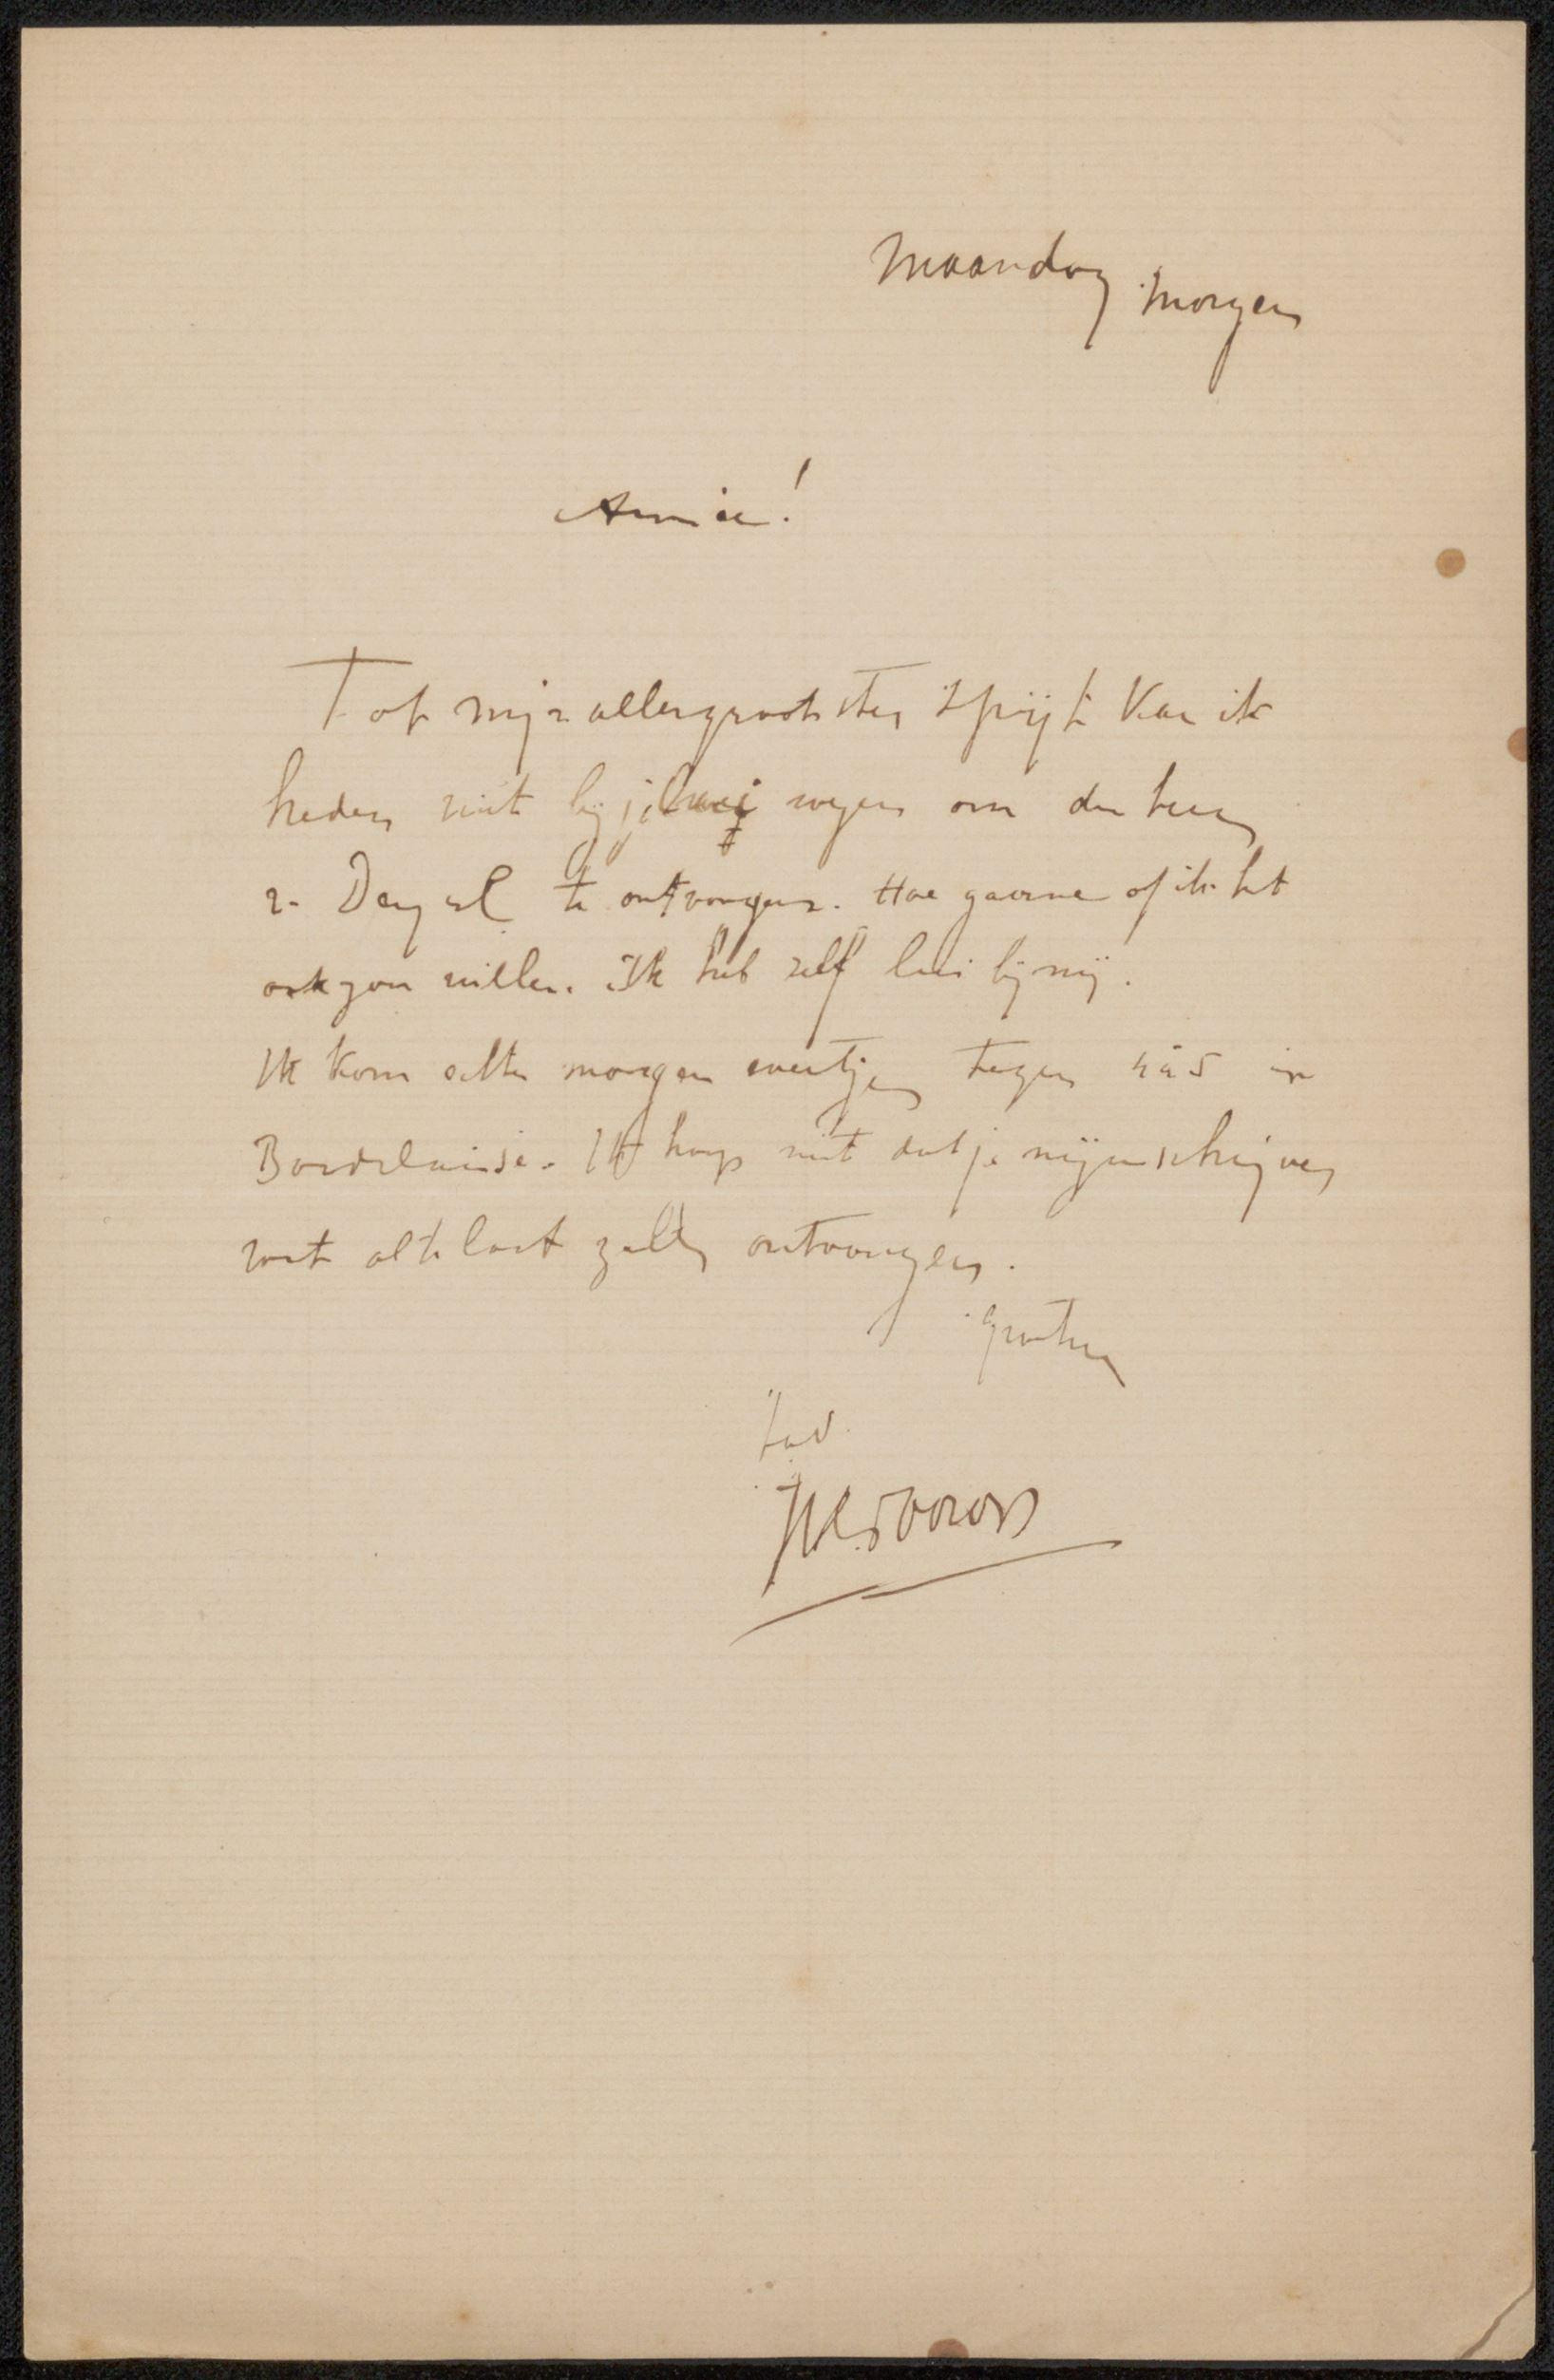 Maandag morgen
Amice!
Tot mijn allergrootsten spijt kan ik
heden niet bij je wezen om den heer
v. Deyssel te ontvangen. Hoe gaarne of ik het
ook zou willen. Ik heb zelf lui bij mij.
Ik kom echter morgen eventjes tegen 4 à 5 in
Bordelaise. Ik hoop niet dat je mijn schrijven
niet al te laat zult ontvangen.
groeten
tav